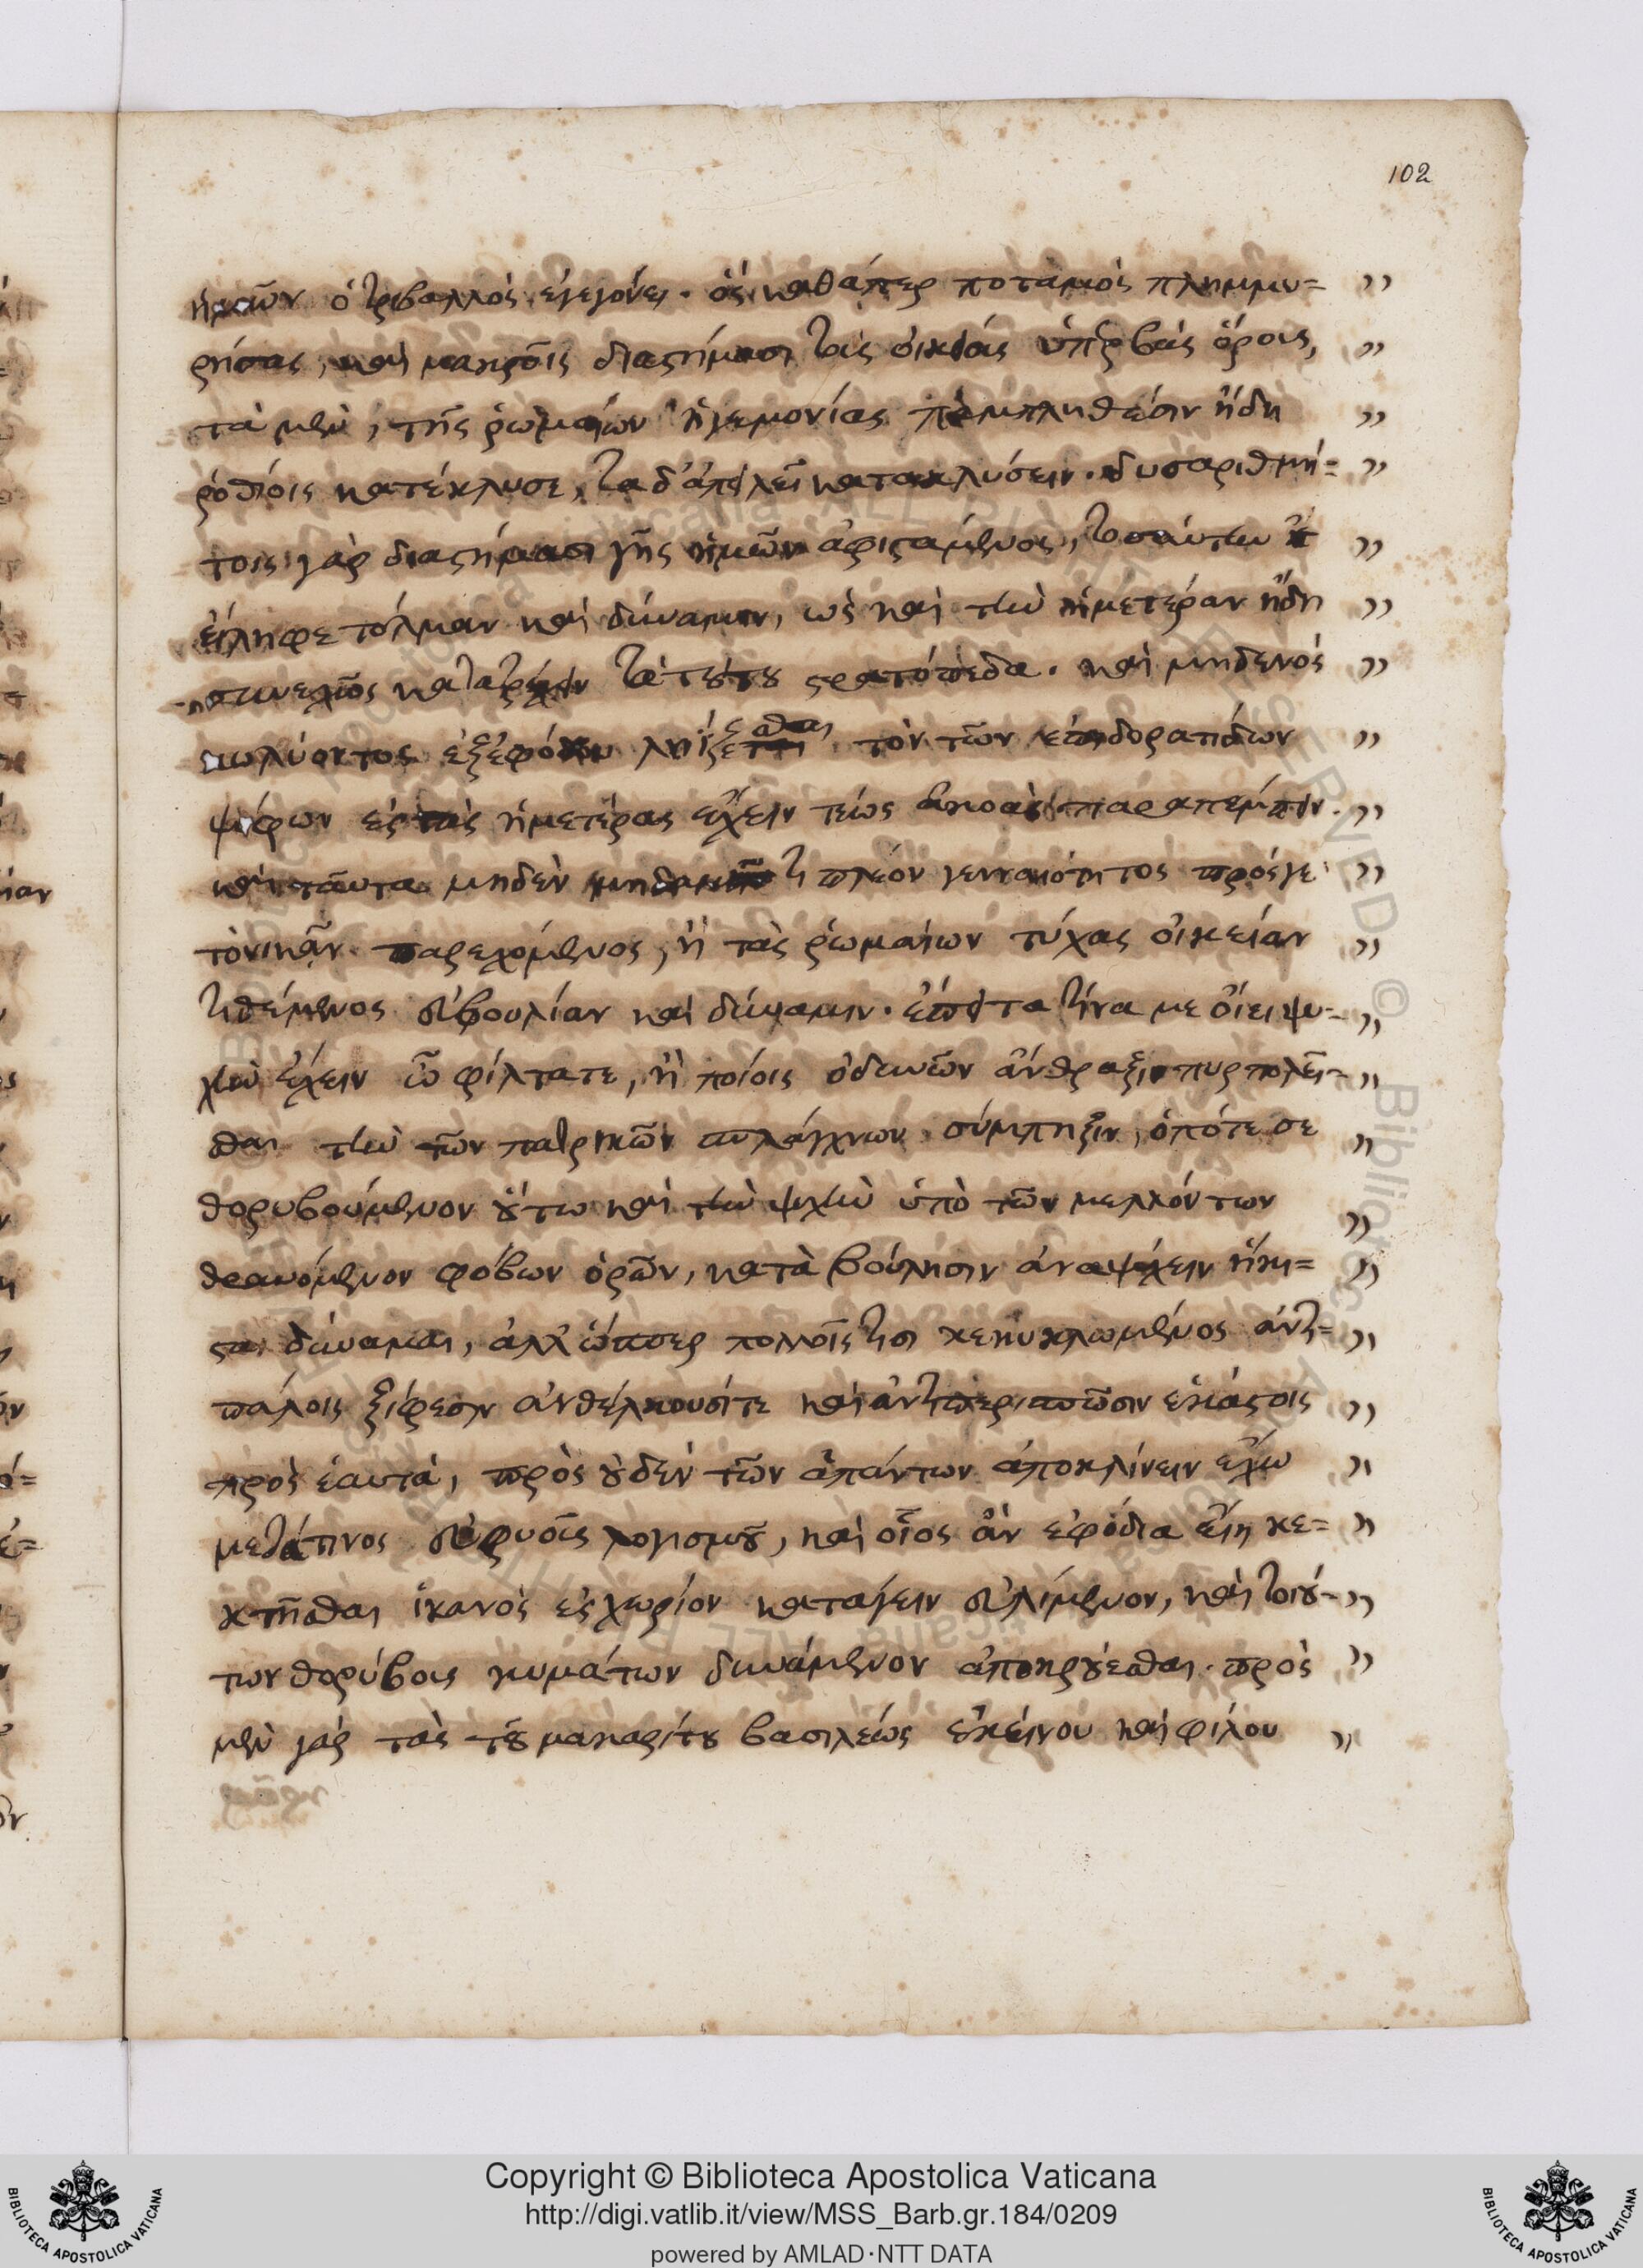 102
ἡμῶν ὁ τριβαλλὸς ἐγεγόνει. ὃς καθάπερ ποταμὸς πλημμυ= ,,
ρήσας, καὶ μακροῖς διαστήμασι τοὺς οἰκείους ὑπερβὰς ὅρους, ,,
τὰ μὲν, τῆς ῥωμαίων ἡγεμονίας παμπληθέσιν ἤδη ,,
ῥοθίοις κατέκλυσε, τὰ δ' ἀπειλεῖ κατακλύσειν. δυσαριθμή= ,,
τοις γὰρ διαστήμασι γῆς ἡμῶν ἀφιστάμενος, τοσαύτην ,,
εἴληφε τόλμαν καὶ δύναμιν, ὡς καὶ τὴν ἡμετέραν ἤδη ,,
συνεχῶς κατατρέχειν τὰ τούτου στρατόπεδα. καὶ μηδενὸς ,,
κωλύοντος ἐξ ἐφόδου ληίζεσθαι τὸν τῶν δορατίων ,,
ψόφων ἐς τὰς ἡμετέρας ἔχειν τέως ἀκοὰς παραπέμπειν. ,,
καὶ ταῦτα μηδὲν τι πλέον γενναιότητος πρός γε ,,
τὸ νικᾶν παρεχόμενος, ἢ τὰς ῥωμαίων τύχας οἰκείαν ,,
τιθέμενος εὐβουλίαν καὶ δύναμιν. ἔπειτα τίνα με οἴει ψυ= ,,
χὴν ἔχειν ὦ φίλτατε, ἢ ποίοις ὀδυνῶν ἄνθραξι πυρπολεῖ- ,,
σθαι τὴν τῶν πατρικῶν σπλάγχνων σύμπηξιν, ὁπότε σε ,,
θορυβούμενον οὕτω καὶ τὴν ψυχὴν ὑπὸ τῶν μελλόντων ,,
θραυόμενον φόβων ὁρῶν, κατὰ βούλησιν ἀναψύχειν ἥκι= ,,
στα δύναμαι, ἀλλ' ὥσπερ πολλοῖς τισι κεκυκλωμένος ἀντι= ,,
πάλοις ξίφεσιν ἀνθέλκουσί τε καὶ ἀντιπερισπῶσιν ἑκάστοις ,,
πρὸς ἑαυτὰ, πρὸς οὐδὲν τῶν ἁπάντων ἀποκλίνειν ἔχω ,,
μετά τινος εὐφυοῦς λογισμοῦ, καὶ οἷος ἂν ἐφόδια εἴη κε= ,,
κτῆσθαι ἱκανὸς ἐς χωρίον κατάγειν εὐλίμενον, καὶ τοιού- ,,
των θορύβοις κυμάτων δυνάμενον ἀποκρούεσθαι. πρὸς ,,
μὲν γὰρ τὰς τοῦ μακαρίτου βασιλέως ἐκείνου καὶ φίλου ,,
Copyright © Biblioteca Apostolica Vaticana
http://digi.vatlib.it/view/MSS_Barb.gr.184/0209
powered by AMLAD·NTT DATA
BIBLIOTECA APOSTOLICA VATICANA
BIBLIOTECA APOSTOLICA VATICANA